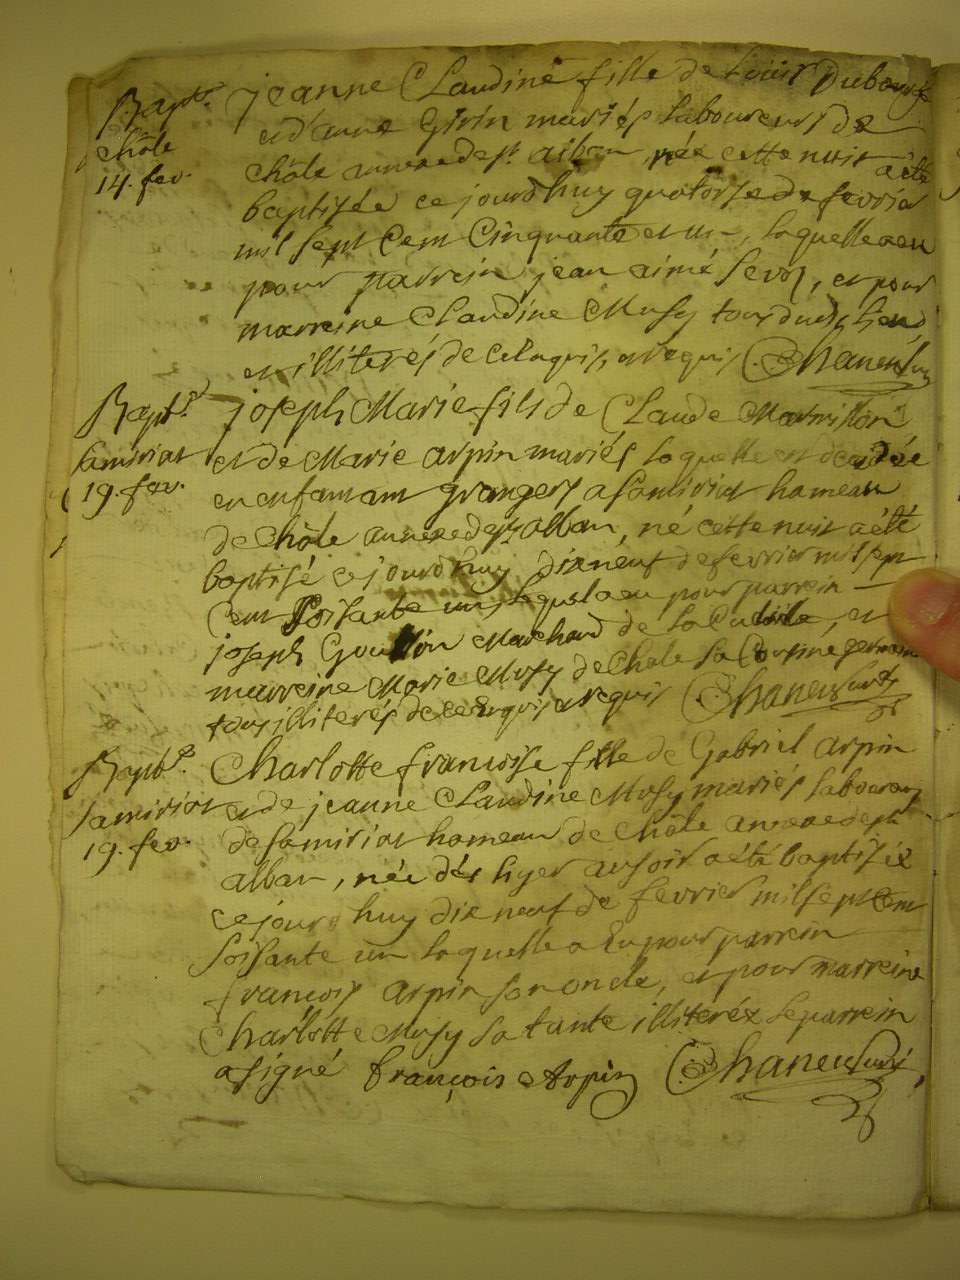 Bapt.e
Chôle
14. fev.
jeanne Claudine fille de Louis Dubourg
et d'anne Girin mariés laboureurs de
Chôle annexe de st alban, née cette nuit a été
baptisée ce jourdhuy quatorse de fevrier
mil sept Cent Cinquante et un, laquelle a eu
pour parrein jean aimé , et pour
marreine Claudine Musy tous dud. lieu
et illiterés de ce enquis, et requis Chaneu
Bapt.e
Samiriat
19. fev.
joseph Marie fils de Claude Marmillon
et de Marie arpin mariés laquelle est décédée
en enfantant grangers a Samiriat hameau
de Chôle annexe de st alban, né cette nuit a été
baptisé ce jourdhuy dixneuf de fevrier mil sept
Cent soisante un, lequel a eu pour parrein
joseph Marchand de la , et
marreine Marie Musy de Chole sa Cousine germaine
tous illiterés de ce enquis et requis Chaneu
Bapt.e
Samiriat
19. fev.
Charlotte françoise fille de Gabriel arpin
et de jeanne Claudine Musy mariés laboureurs
de Samiriat hameau de Chôle annexe de st
alban, née dés hyer au soir a été baptisée
ce jourdhuy dixneuf de fevrier mil sept Cent
soisante un laquelle a Eu pour parrein
françois arpin son oncle, et pour marreine
Charlotte Musy sa tante illiteréz le parrein
a signé françois Arpin Chaneu